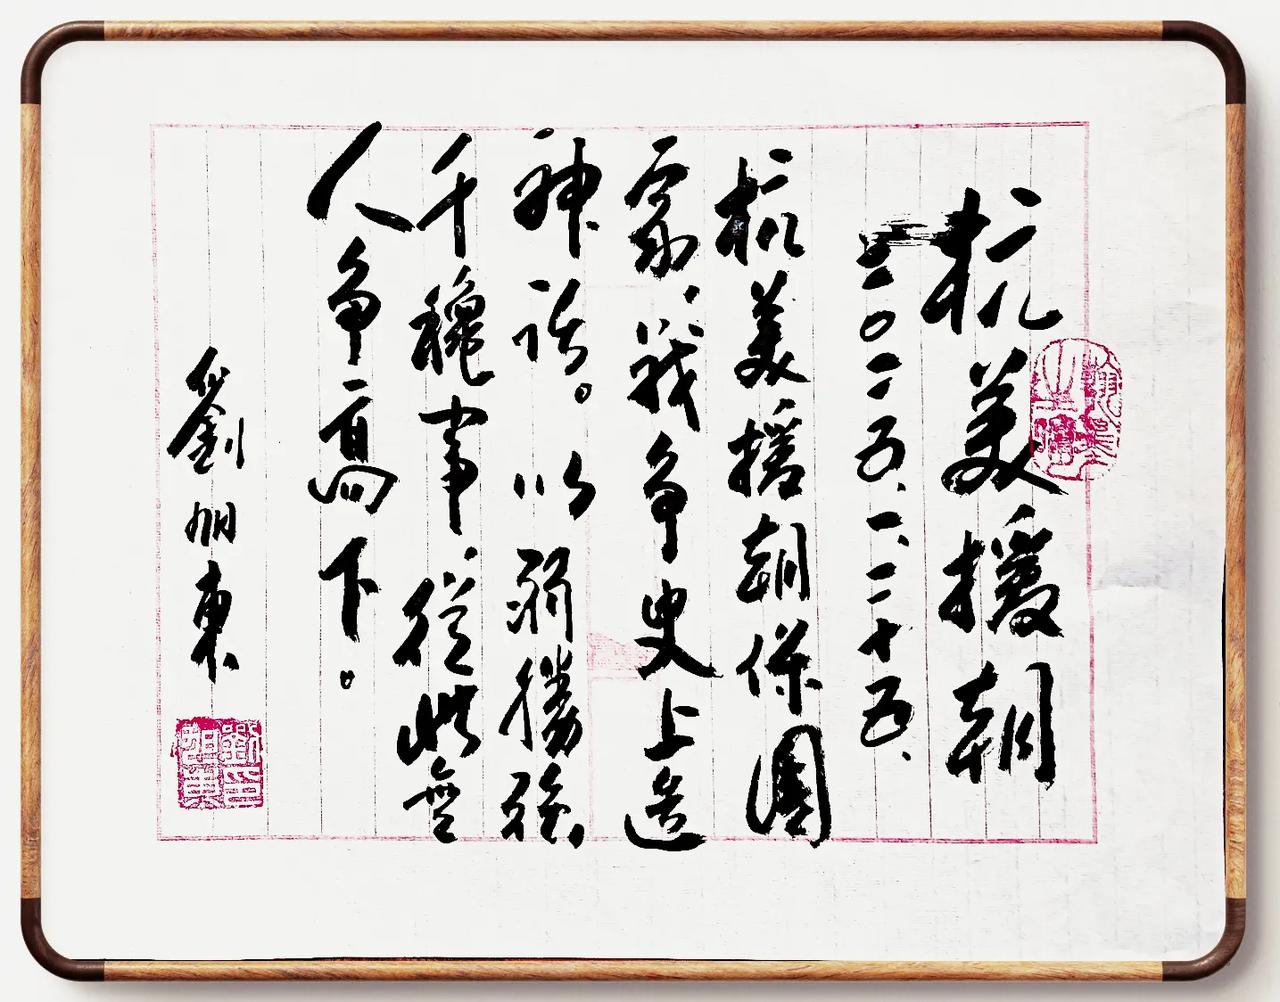 抗美援朝
二〇二五、一、二十五、
抗美援朝保國
家，戰争史上造
神話。以弱勝强
千穐事，從此無
人争高下。
劉旭東
劉旭東印